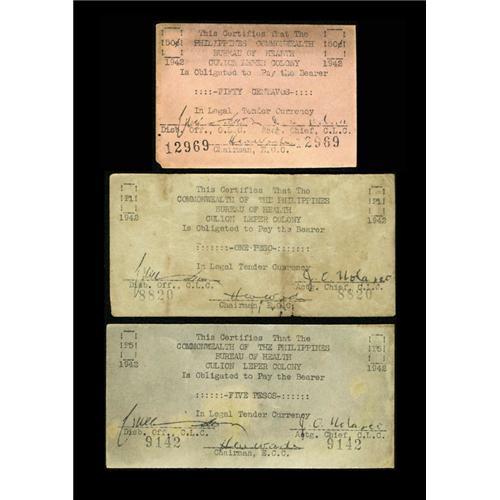 This Certifies That The
50¢ PHILIPPINES COMMONWEALTH 50¢
BUREAU OF HEALTH
1942 CULION LEPER COLONY 1942
Is Obligated to Pay the Bearer
::::-FIFTY CENTAVOS-::::
In Legal Tender Currency
Disb. Off., C.L.C. Actg. Chief, C.L.C.
12969 12969
Chairman, E.C.C.
This Certifies That The
P1 COMMONWEALTH OF THE PHILIPPINES P1
BUREAU OF HEALTH
1942 CULION LEPER COLONY 1942
Is Obligated to Pay the Bearer
:::::::-ONE PESO-:::::::
In Legal Tender Currency
Disb. Off., C.L.C. Actg. Chief, C.L.C.
8820 8820
Chairman, E.C.C.
This Certifies That The
P5 COMMONWEALTH OF THE PHILIPPINES P5
BUREAU OF HEALTH
1942 CULION LEPER COLONY 1942
Is Obligated to Pay the Bearer
::::::-FIVE PESOS-::::::
In Legal Tender Currency
Disb. Off., C.L.C. Actg. Chief, C.L.C.
9142 9142
Chairman, E.C.C.